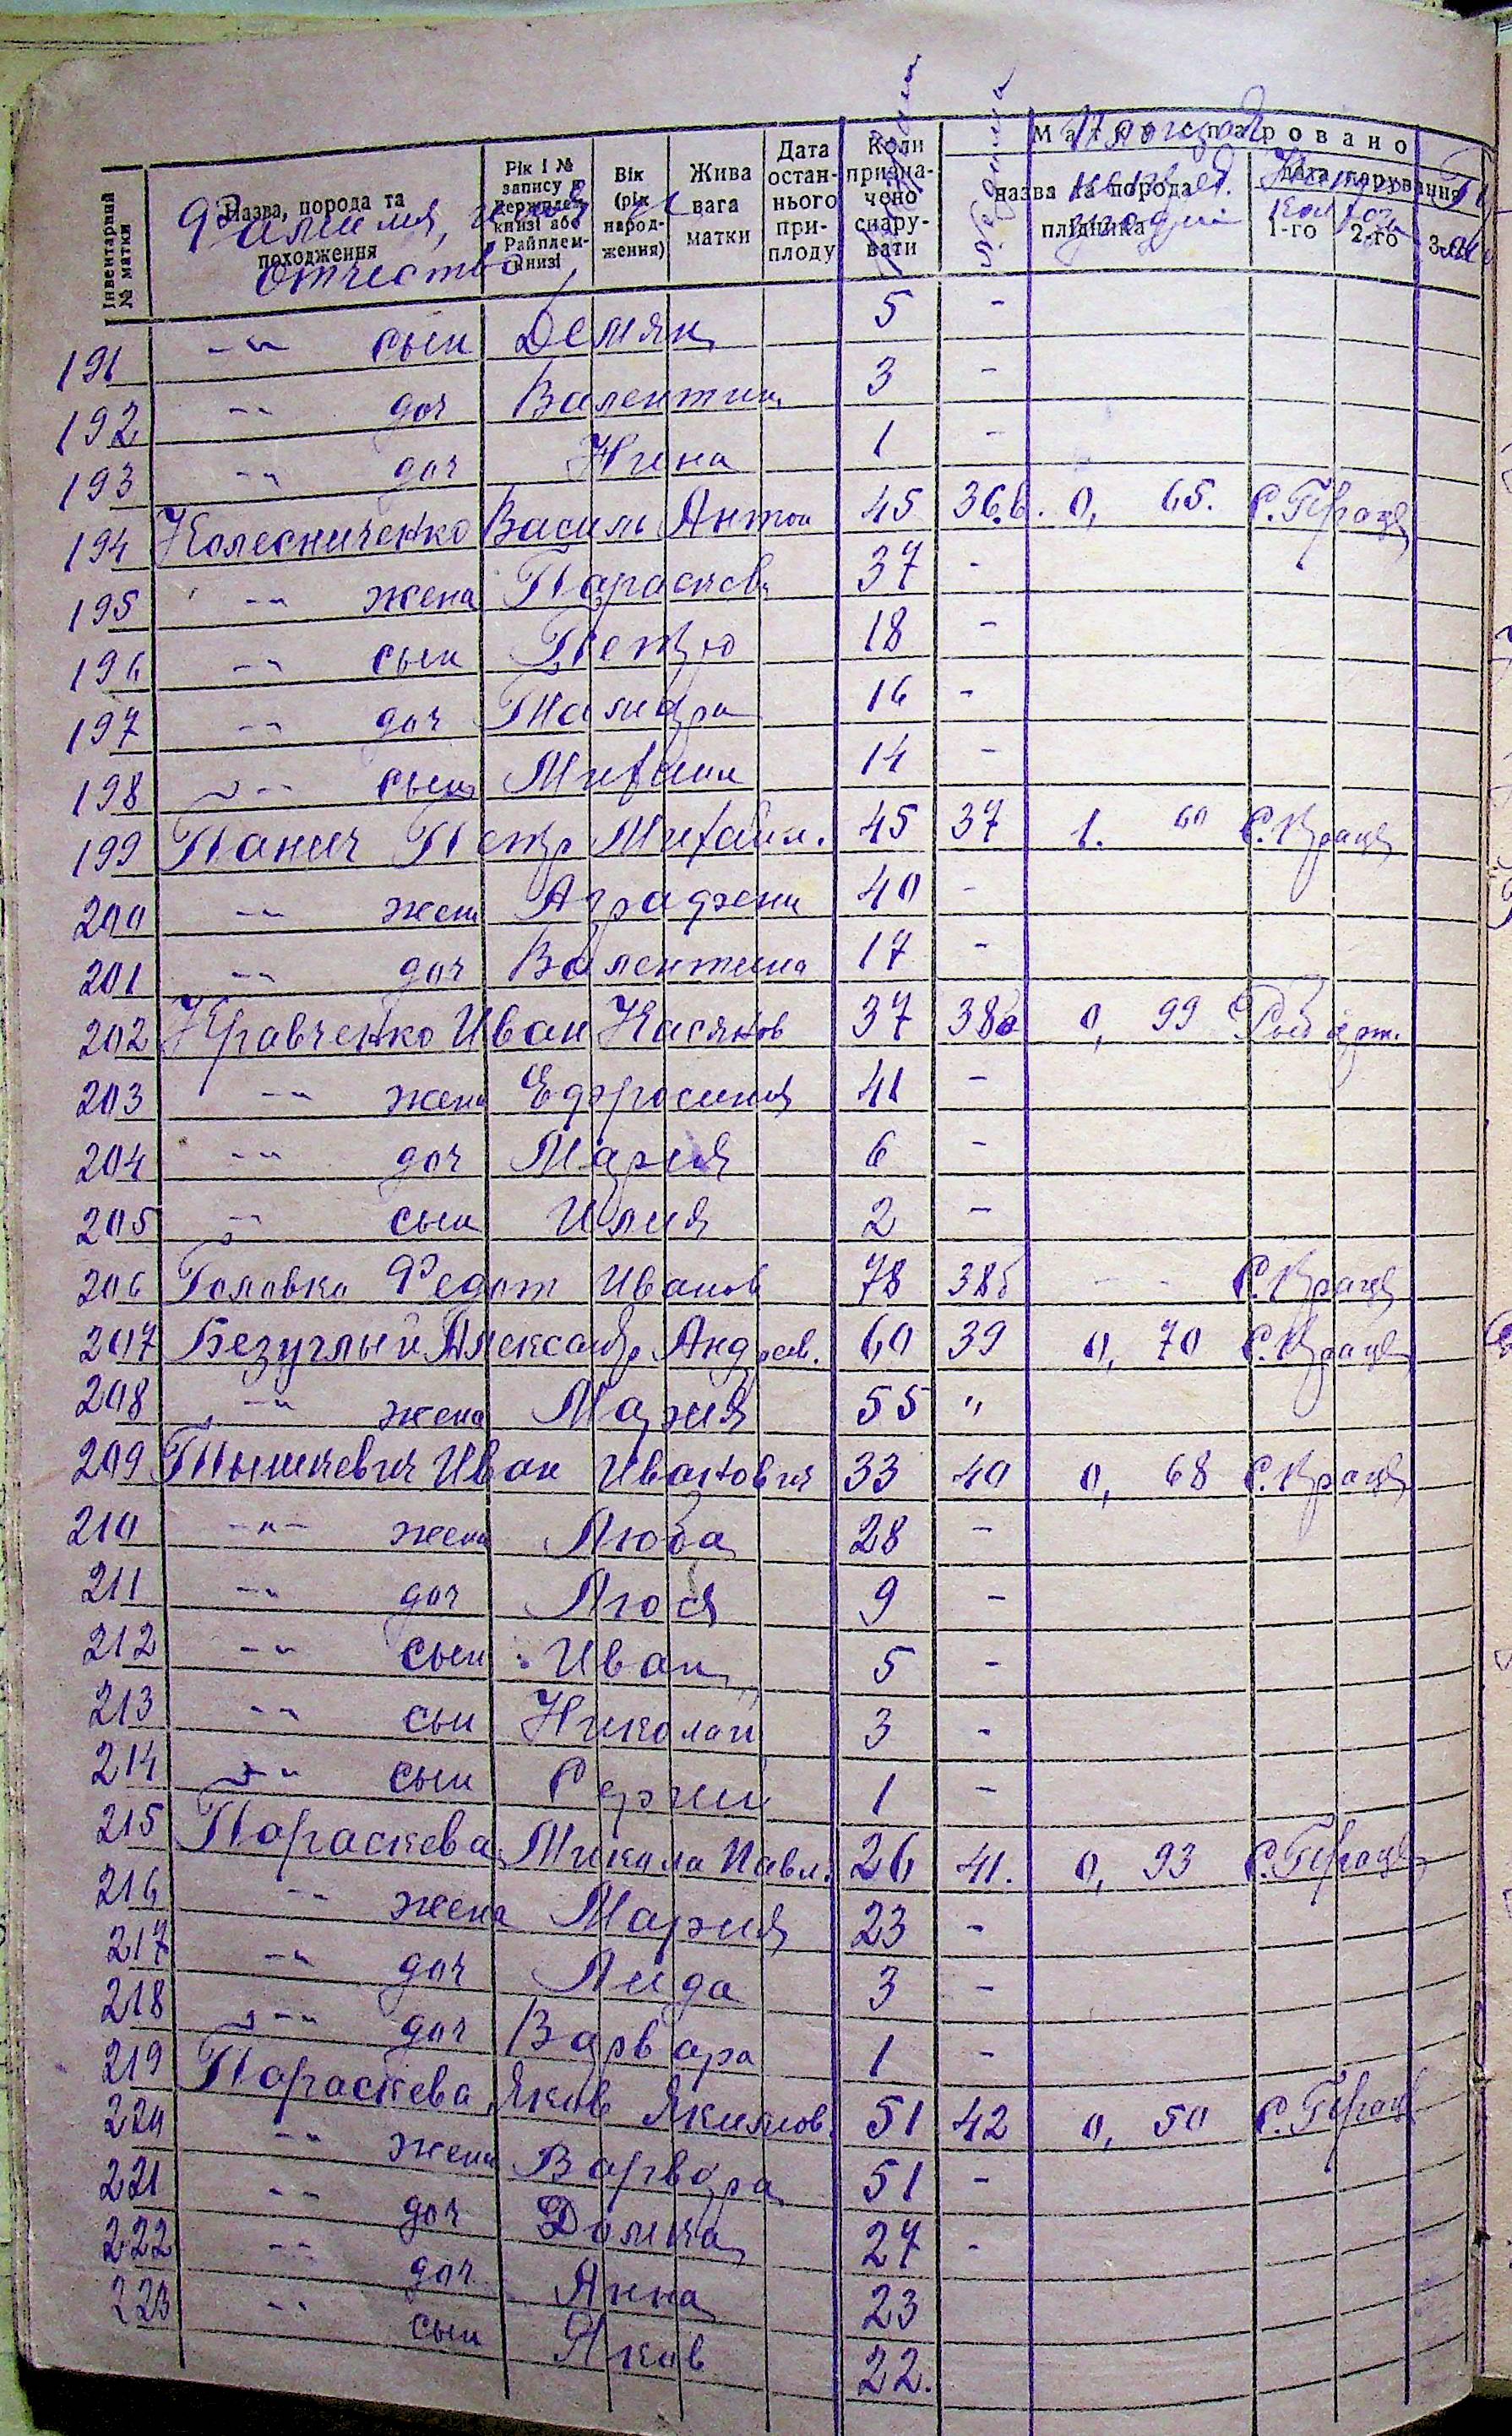 Інвентарний № матки
Назва, порода та походження
Рік і № запису в держплемкнизі або Райплемкнизі
Вік (рік народження)
Жива вага матки
Дата останнього приплоду
Коли призначено спарувати
Матку спаровано
назва та порода плідника
Дата парування
1-го 2-го
Фамилия, имя
Отчество
191 -"- сын Демян 5 -
192 -"- доч Валентин 3 -
193 -"- доч Нина 1 -
194 Колесниченко Василь Антон 45 36в. 0, 65. С.
195 -"- жена Параскев 37 -
196 -"- сын Петро 18 -
197 -"- доч Тамара 16 -
198 -"- сын Михаил 14 -
199 Панич Петр Михаил. 45 37 1. 60
200 -"- жена Аграфена 40 -
201 -"- доч Валентина 17 -
202 Кравченко Иван Касянов 37 38а 0, 99 Рыб арт.
203 -"- жена Ефросиния 41 -
204 -"- доч Мария 6 -
205 -"- сын Илия 2 -
206 Головко Федот Иванов 78 38б - -
207 Безуглый Александр Андреев. 60 39 0, 70
208 -"- жена Мария 55 "
209 Тышкевич Иван Иванович 33 40 0, 68
210 -"- жена Люба 28 -
211 -"- доч Люся 9 -
212 -"- сын Иван 5 -
213 -"- сын Николай 3 -
214 -"- сын Сергий 1 -
215 Параскева Микола Павл. 26 41. 0, 93
216 -"- жена Мария 23 -
217 -"- доч Лида 3 -
218 -"- доч Варвара 1 -
219 Параскева Яков Якимов. 51 42 0, 50
220 -"- жена Варвара 51 -
221 -"- доч Домка 27 -
222 -"- доч Анна 23
223 -"- сын Яков 22.